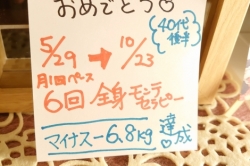 おめでとう♡
40代
後半
5/29 → 10/23
月1回ペース
6回 全身モンテセラピー
マイナスー6.8kg 達成